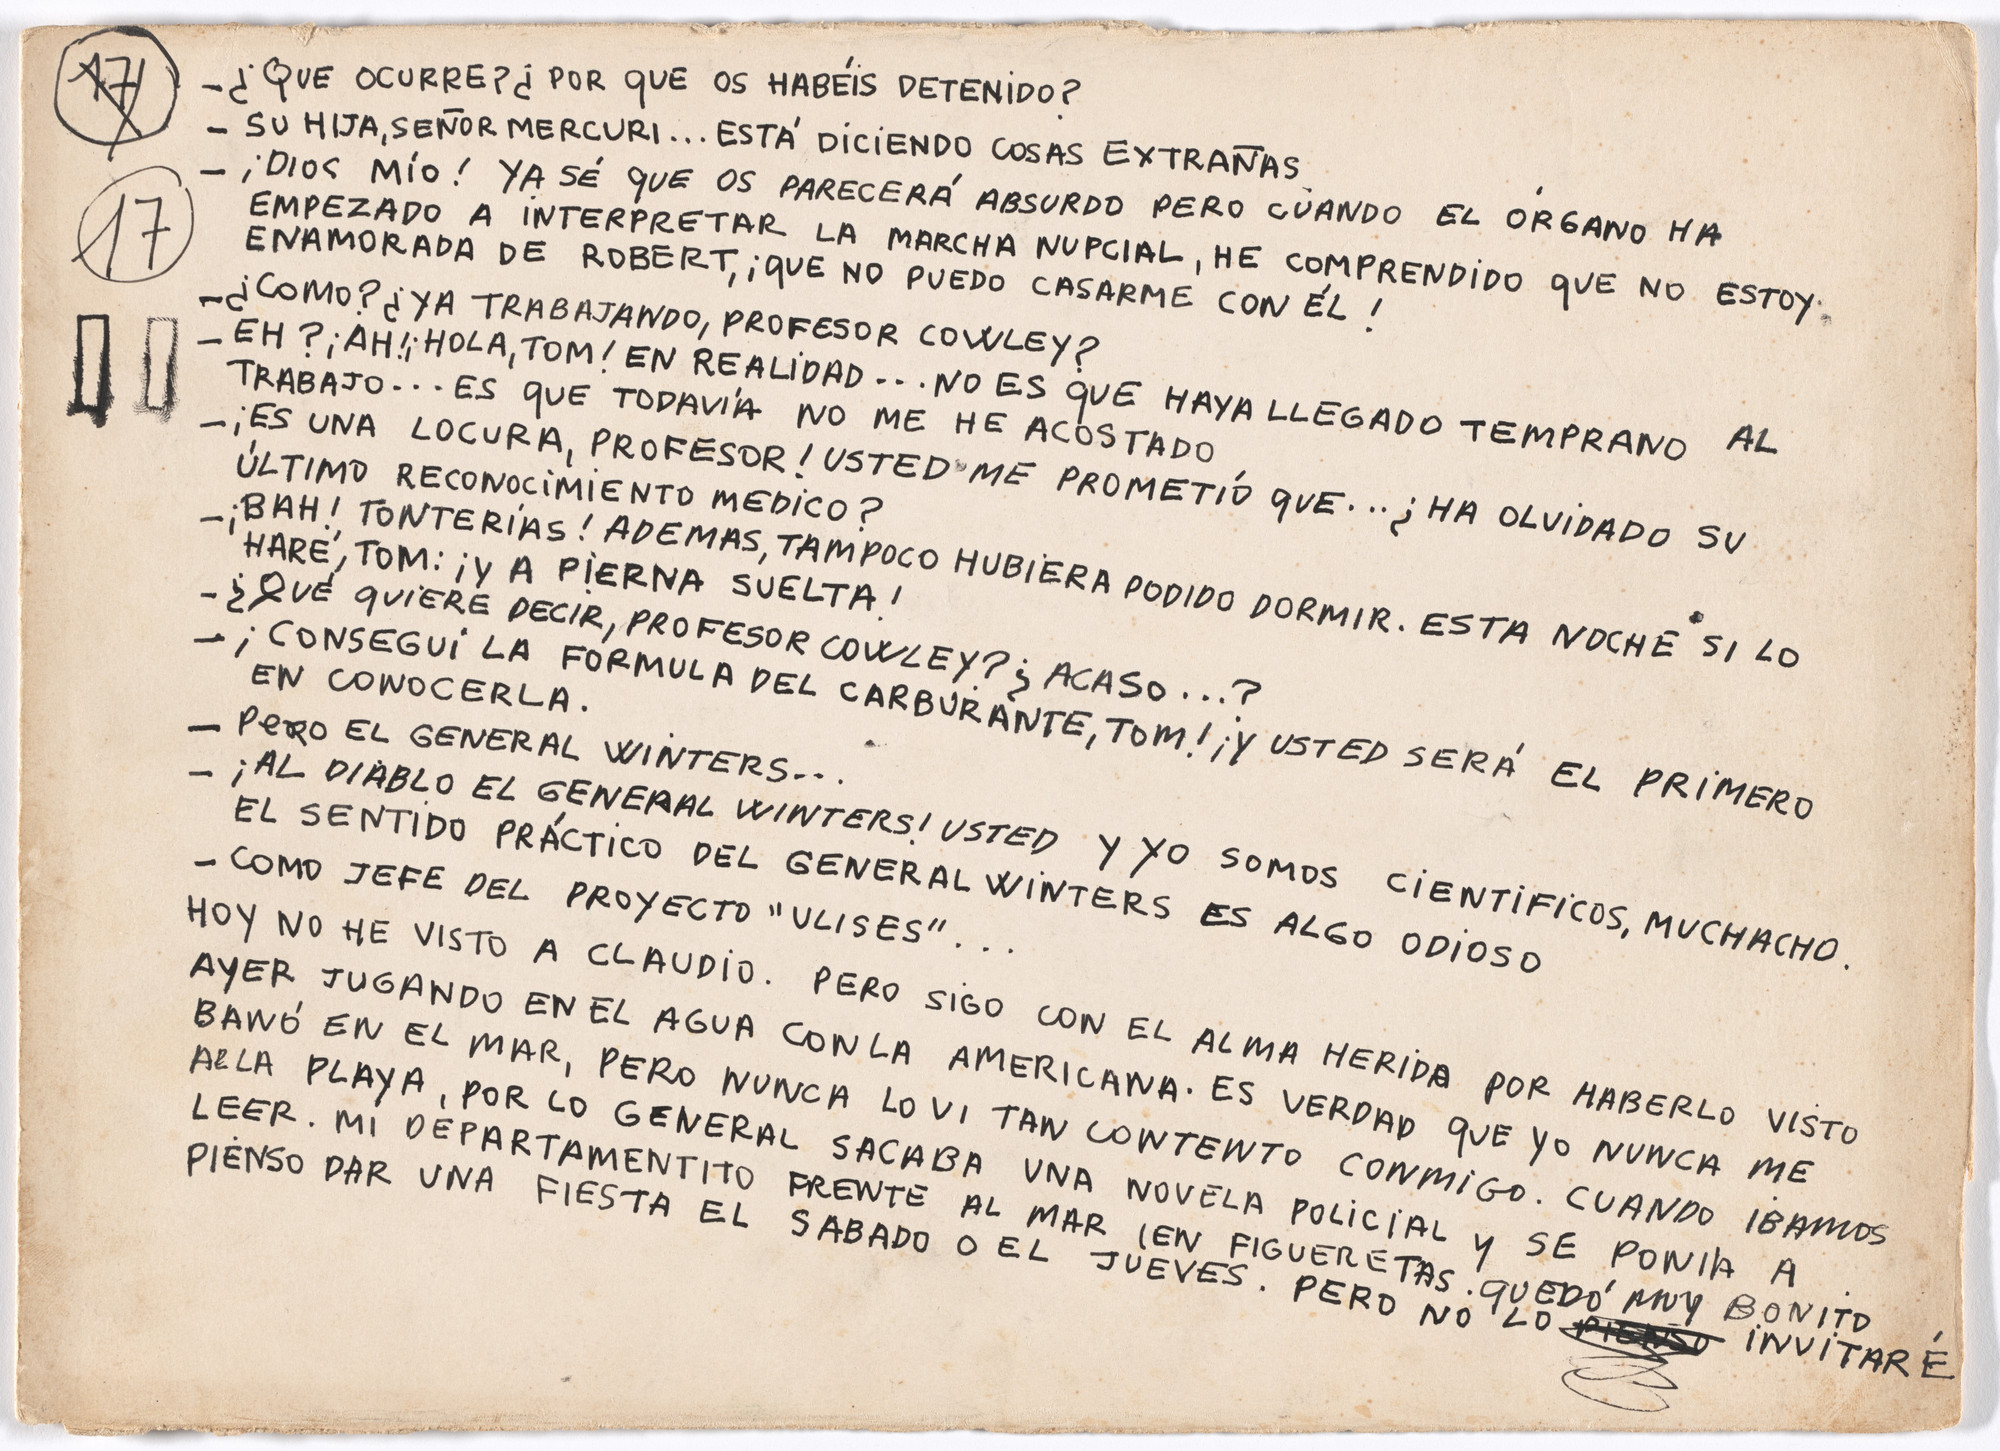 17
17
-¿QUE OCURRE?¿POR QUE OS HABÉIS DETENIDO?
- SU HIJA, SEÑOR MERCURI... ESTÁ DICIENDO COSAS EXTRAÑAS
- ¡DIOS MÍO! YA SÉ QUE OS PARECERÁ ABSURDO PERO CUANDO EL ÓRGANO HA
EMPEZADO A INTERPRETAR LA MARCHA NUPCIAL, HE COMPRENDIDO QUE NO ESTOY
ENAMORADA DE ROBERT, ¡QUE NO PUEDO CASARME CON ÉL!
-¿COMO?¿YA TRABAJANDO, PROFESOR COWLEY?
- EH?¡AH!¡HOLA, TOM! EN REALIDAD... NO ES QUE HAYA LLEGADO TEMPRANO AL
TRABAJO... ES QUE TODAVÍA NO ME HE ACOSTADO
-¡ES UNA LOCURA, PROFESOR! USTED ME PROMETIÓ QUE...¿HA OLVIDADO SU
ÚLTIMO RECONOCIMIENTO MEDICO?
-¡BAH! TONTERÍAS! ADEMAS, TAMPOCO HUBIERA PODIDO DORMIR. ESTA NOCHE SI LO
HARÉ, TOM: ¡Y A PIERNA SUELTA!
-¿QUÉ QUIERE DECIR, PROFESOR COWLEY?¿ACASO...?
-¡CONSEGUI LA FORMULA DEL CARBURANTE, TOM!¡Y USTED SERÁ EL PRIMERO
EN CONOCERLA.
- PERO EL GENERAL WINTERS...
- ¡AL DIABLO EL GENERAL WINTERS! USTED Y YO SOMOS CIENTIFICOS, MUCHACHO.
EL SENTIDO PRÁCTICO DEL GENERAL WINTERS ES ALGO ODIOSO
- COMO JEFE DEL PROYECTO "ULISES"...
HOY NO HE VISTO A CLAUDIO. PERO SIGO CON EL ALMA HERIDA POR HABERLO VISTO
AYER JUGANDO EN EL AGUA CON LA AMERICANA. ES VERDAD QUE YO NUNCA ME
BANÓ EN EL MAR, PERO NUNCA LO VI TAN CONTENTO CONMIGO. CUANDO IBAMOS
A LA PLAYA, POR LO GENERAL SACABA UNA NOVELA POLICIAL Y SE PONIA A
LEER. MI DEPARTAMENTITO FRENTE AL MAR (EN FIGUERETAS. QUEDÓ MUY BONITO
PIENSO DAR UNA FIESTA EL SABADO O EL JUEVES. PERO NO LO PIENSO INVITARÉ